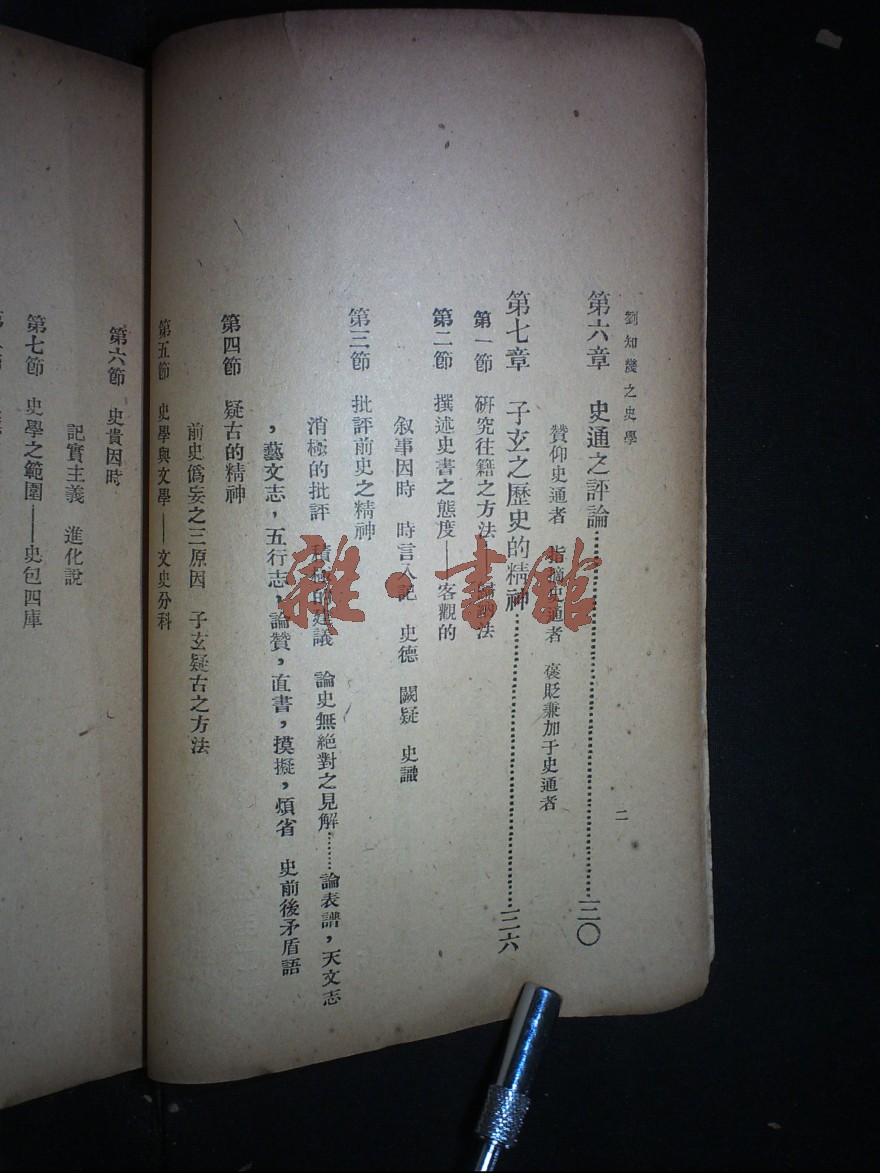 劉知幾之史學
二
第六章 史通之評論……三〇
贊仰史通者 指摘史通者 褒貶兼加于史通者
第七章 子玄之歷史的精神……三六
第一節 研究往籍之方法——歸納法
第二節 撰述史書之態度——客觀的
叙事因時 時言入記 史德 闕疑 史識
第三節 批評前史之精神
消極的批評 積極的建議 論史無絕對之見解……論表譜，天文志
，藝文志，五行志，論贊，直書，摸擬，煩省 史前後矛盾語
第四節 疑古的精神
前史僞妄之三原因 子玄疑古之方法
第五節 史學與文學——文史分科
第六節 史貴因時
記實主義 進化說
第七節 史學之範圍——史包四庫
雜·書館